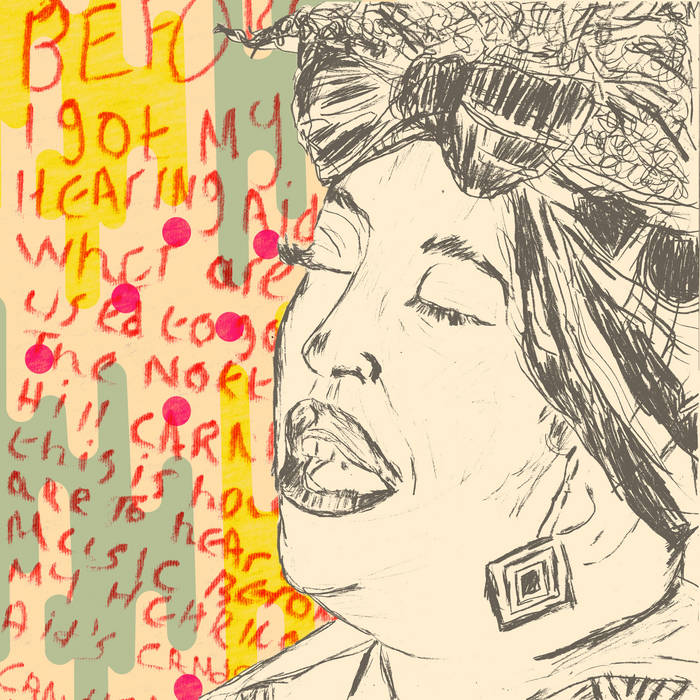 BEFOR
I got MY
HEArING Aid
are
Used to go
The Nott
Hill CARNI
this is how
are To hEAr
MUSIC BEFO
MY HEArIN
Aid's CANd
CAN